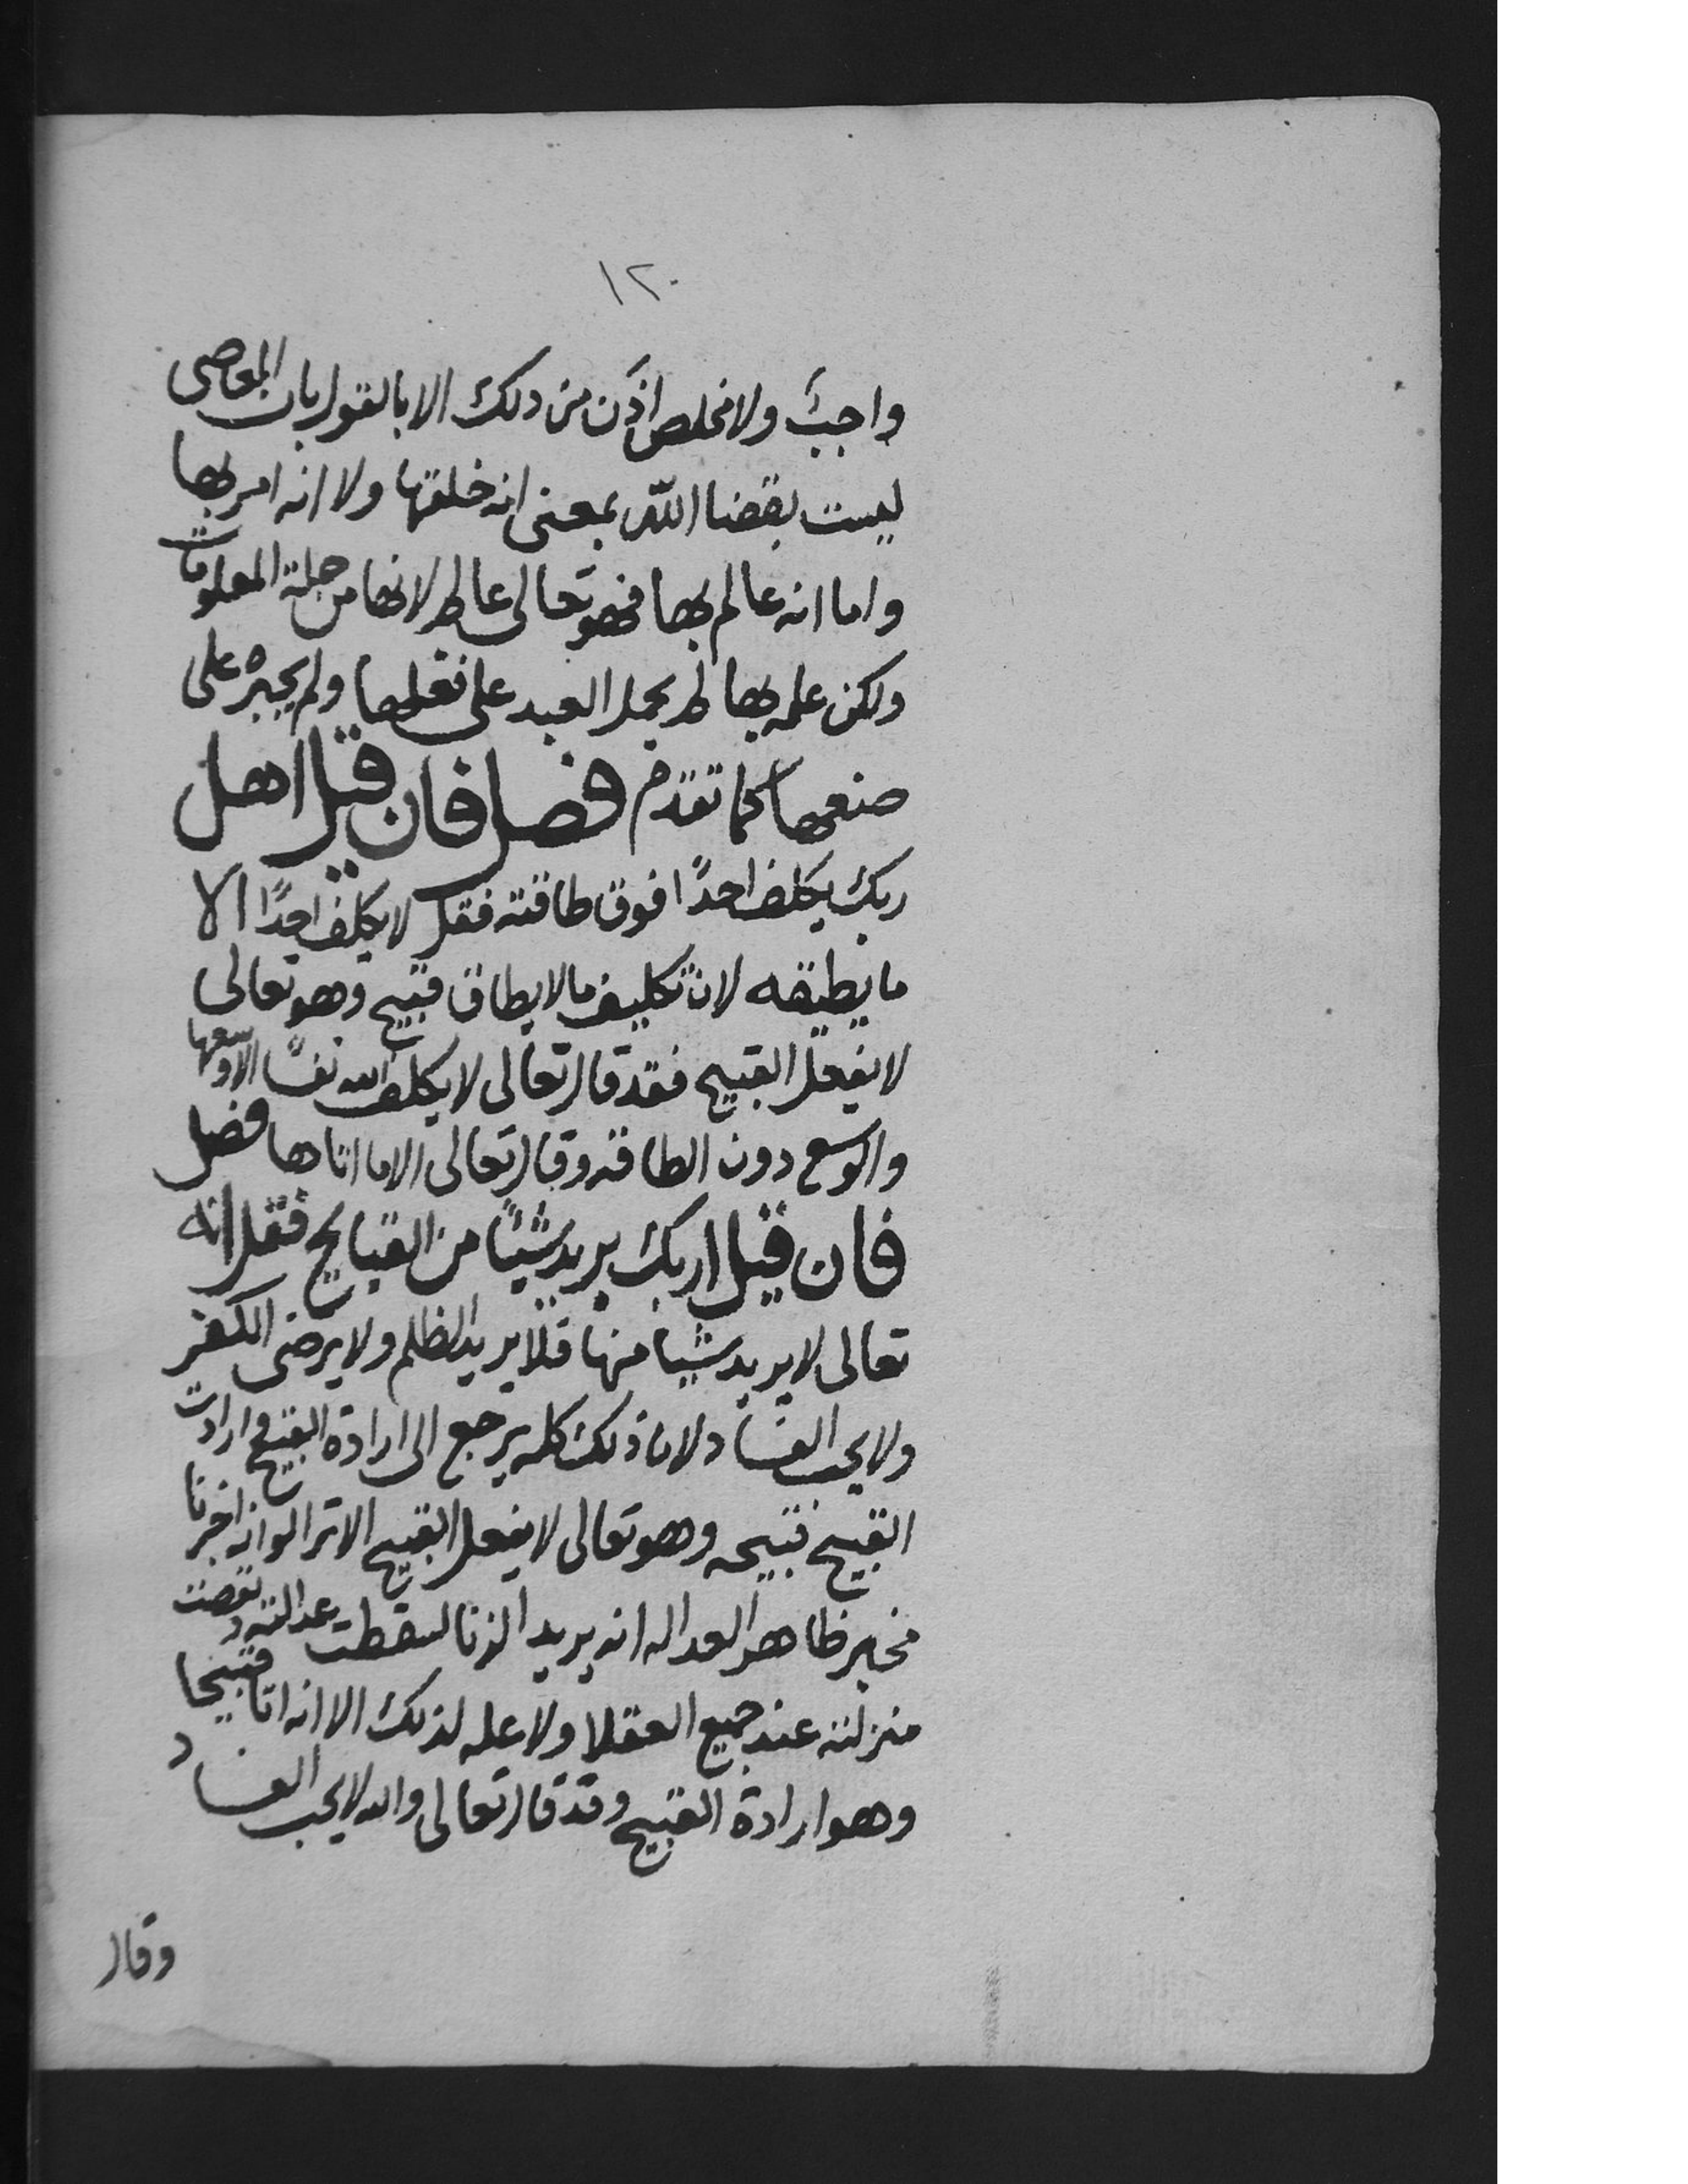 ١٢٠
واجبٌ ولا مخلص اذًن من ذلك الا بالقول بان المعاصى
ليست بقضا اللّه بمعنى انه خلقها ولا انه امر بها
واما انه عالم بها فهو تعالى عالم لانها من جملة المعلومات
ولكن علمه بها لم يحمل العبد على فعلها ولم يجبره على
صنعها كما تقدم فصل فان قيل اهل
ربك يكلف احدًا فوق طاقته فقل لا يكلف احدًا الا
ما يطيقه لان تكليف ما لا يطاق قبيح وهو تعالى
لا يفعل القبيح فقد قال تعالى لا يكلف الله نفسًا الا وسعها
والوسع دون الطاقه وقال تعالى الا ما اتاها فصل
فان قيل اربك يريد شيئًا من القبايح فقل انه
تعالى لا يريد شيا منها فلا يريد الظلم ولا يرضى الكفر
ولا يحب الفساد لان ذلك كله يرجع الى ارادة القبيح وارادت
القبيح قبيحه وهو تعالى لا يفعل القبيح الا ترا لو انه اخبرنا
مخبر ظاهر العداله انه يريد الزنا لسقطت عدالته ونقصت
منزلته عند جميع العقلا ولا عله لذلك الا انه اتا قبيحا
وهو ارادة القبيح وقد قال تعالى والله لا يحب الفساد
وقال